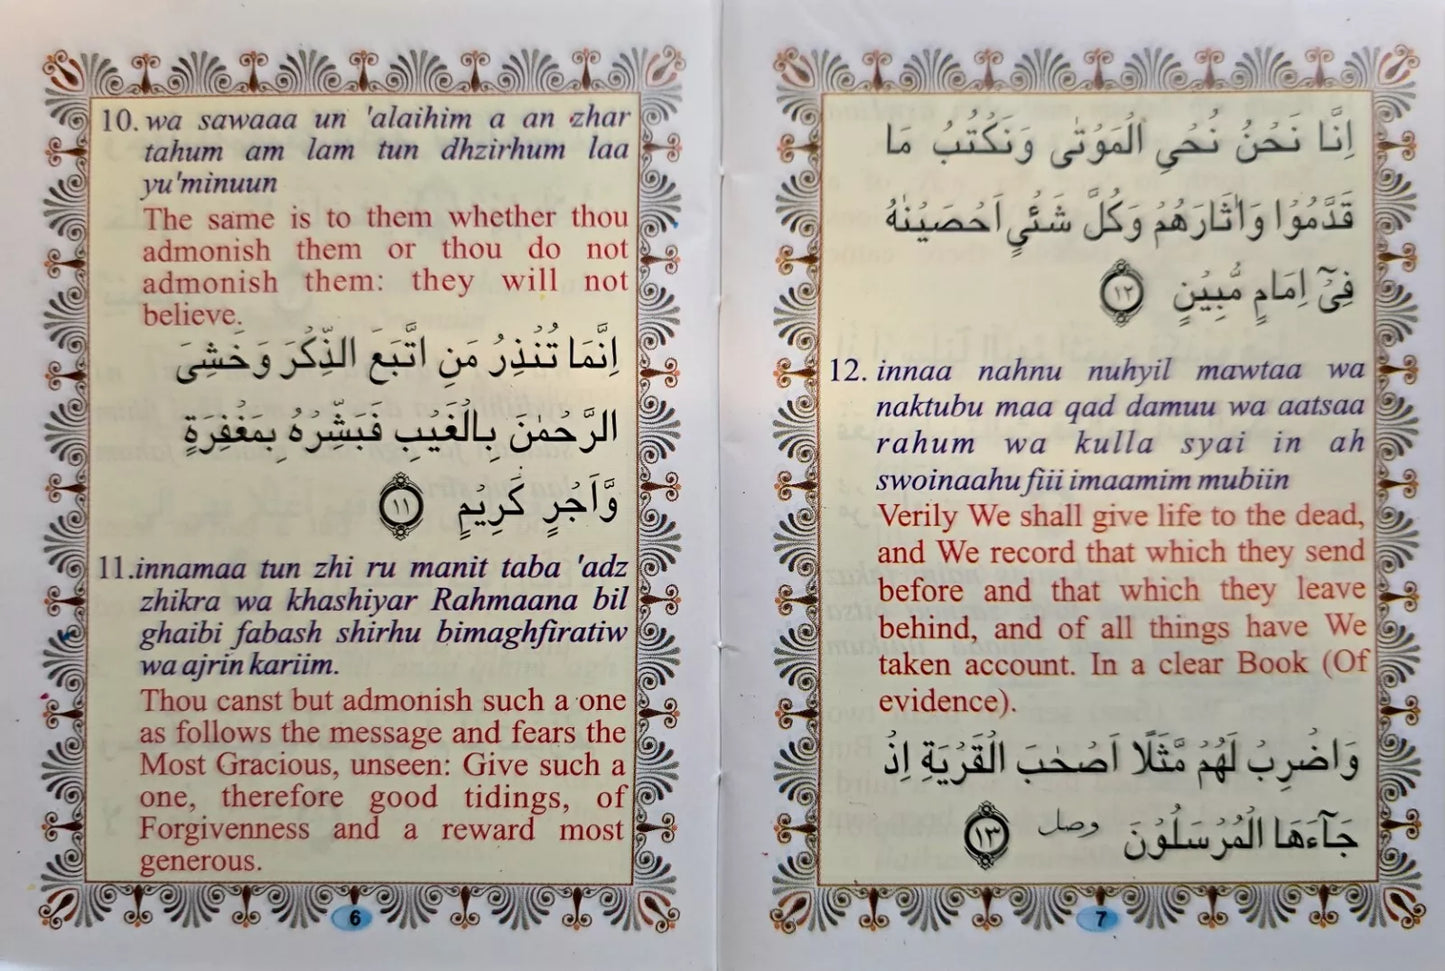 10. wa sawaaa un 'alaihim a an zhar
tahum am lam tun dhzirhum laa
yu'minuun
The same is to them whether thou
admonish them or thou do not
admonish them: they will not
believe.
اِنَّمَا تُنْذِرُ مَنِ اتَّبَعَ الذِّكْرَ وَخَشِىَ
الرَّحْمٰنَ بِالْغَيْبِ فَبَشِّرْهُ بِمَغْفِرَةٍ
وَّاَجْرٍ كَرِيْمٍ ١١
11. innamaa tun zhi ru manit taba 'adz
zhikra wa khashiyar Rahmaana bil
ghaibi fabash shirhu bimaghfiratiw
wa ajrin kariim.
Thou canst but admonish such a one
as follows the message and fears the
Most Gracious, unseen: Give such a
one, therefore good tidings, of
Forgivenness and a reward most
generous.
6
اِنَّا نَحْنُ نُحْىِ الْمَوْتٰى وَنَكْتُبُ مَا
قَدَّمُوْا وَاٰثَارَهُمْ وَكُلَّ شَىْءٍ اَحْصَيْنٰهُ
فِىْٓ اِمَامٍ مُّبِيْنٍ ١٢
12. innaa nahnu nuhyil mawtaa wa
naktubu maa qad damuu wa aatsaa
rahum wa kulla syai in ah
swoinaahu fiii imaamim mubiin
Verily We shall give life to the dead,
and We record that which they send
before and that which they leave
behind, and of all things have We
taken account. In a clear Book (Of
evidence).
وَاضْرِبْ لَهُمْ مَّثَلًا اَصْحٰبَ الْقَرْيَةِ اِذْ
جَآءَهَا الْمُرْسَلُوْنَ وصل ١٣
7